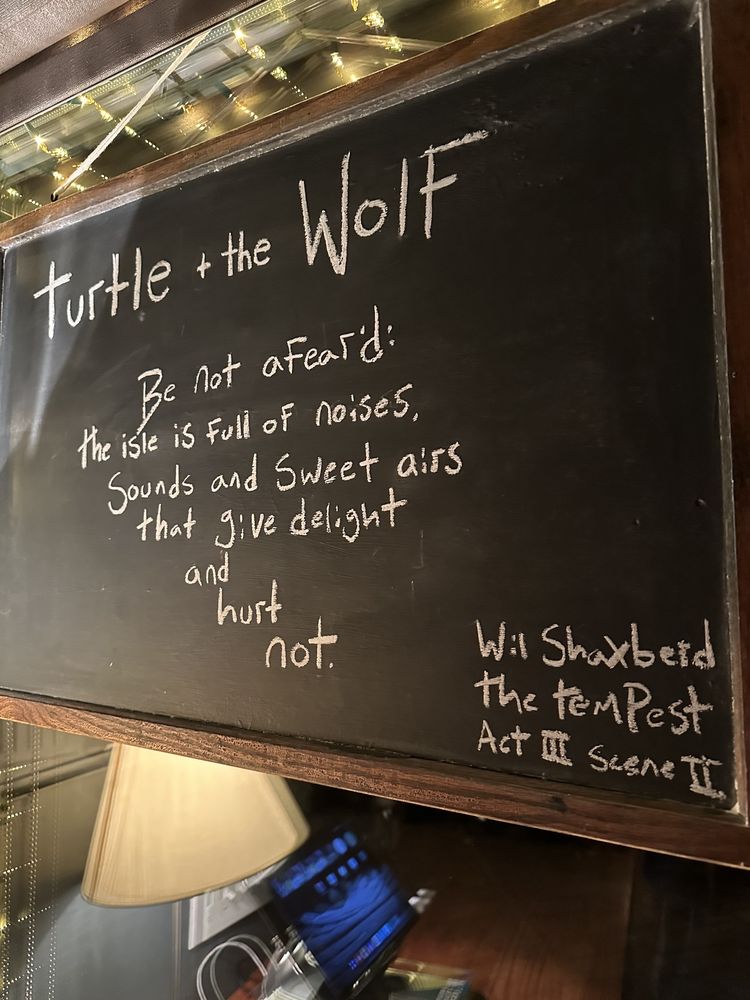 turtle + the WolF
Be not aFear'd:
the isle is Full oF noises,
Sounds and Sweet airs
that give delight
and
hurt
not.
Wil Shaxberd
the temPest
Act III Scene II